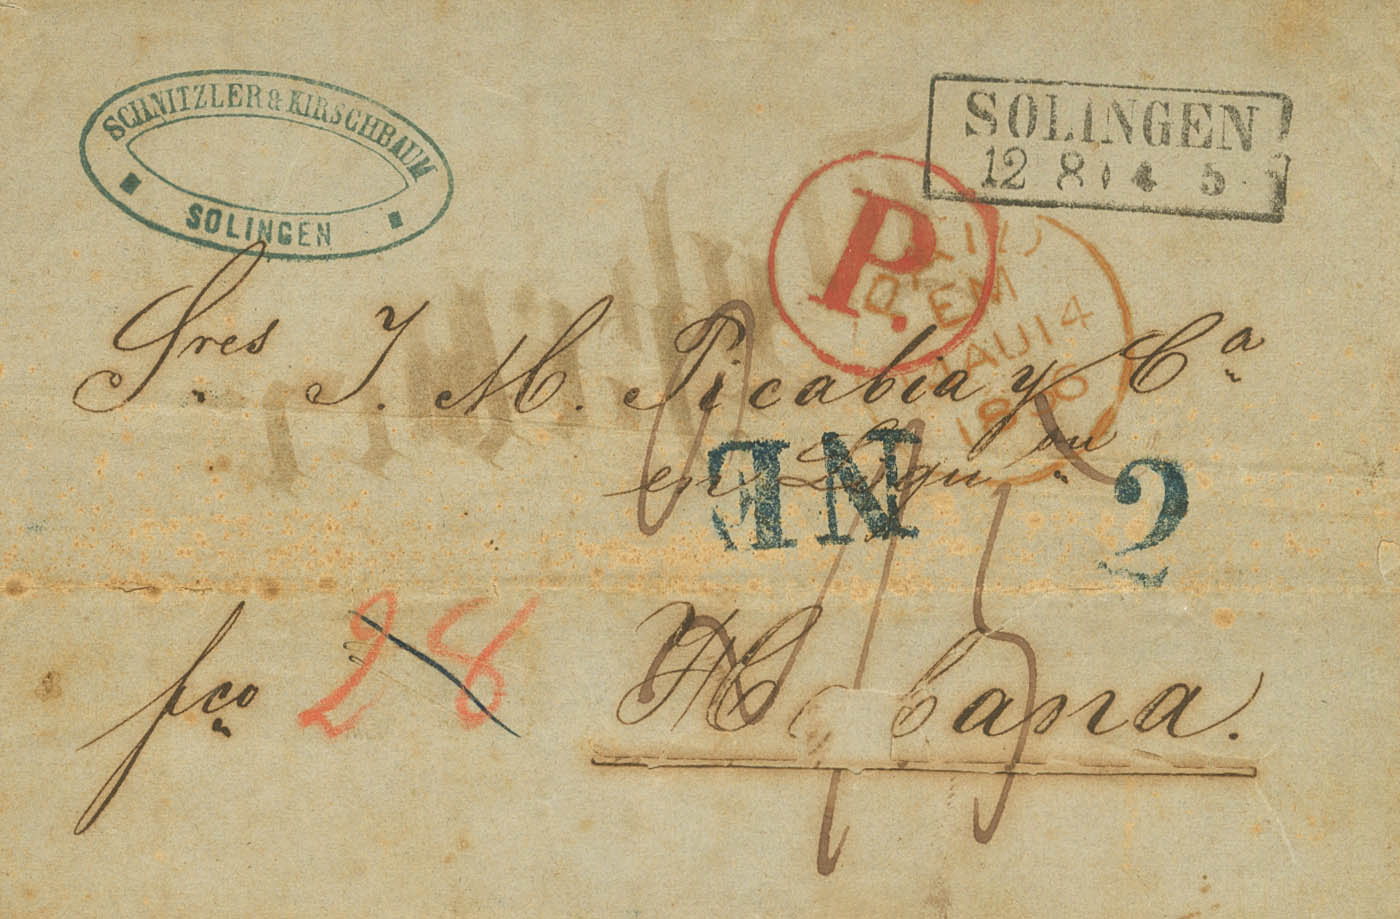 SCHNITZLER & KIRSCHBAUM
SOLINGEN
SOLINGEN
12 8 4 5
P.
EM
AU 14
Sres J. M. Picabia y Ca
en
NE
2
fco 28
Habana.